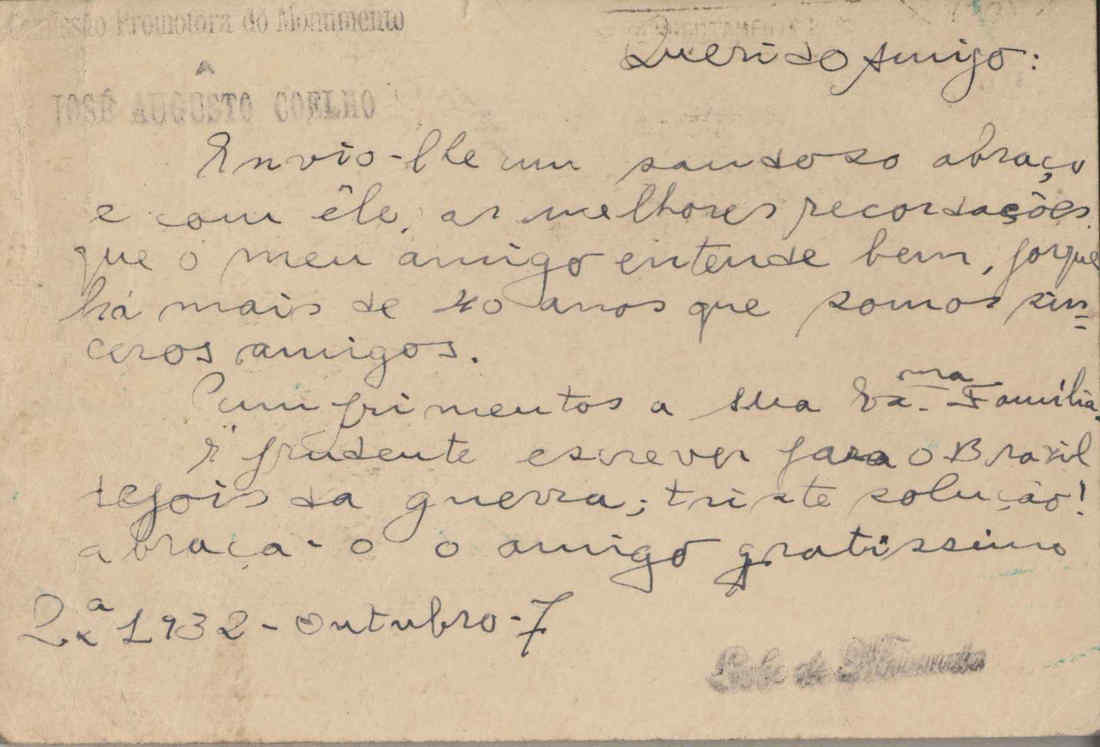 Comissão Promotora do Monumento
A
JOSÉ AUGUSTO COELHO
Querido Amigo:
Envio-lhe um saudoso abraço
e com êle, as melhores recordações
que o meu amigo entende bem, porque
há mais de 40 anos que somos sin=
ceros amigos.
Cumprimentos a sua Exma Família.
É prudente escrever para o Brasil
depois da guerra; triste solução!
abraça-o o amigo gratissimo
2ª 1932-Outubro-7